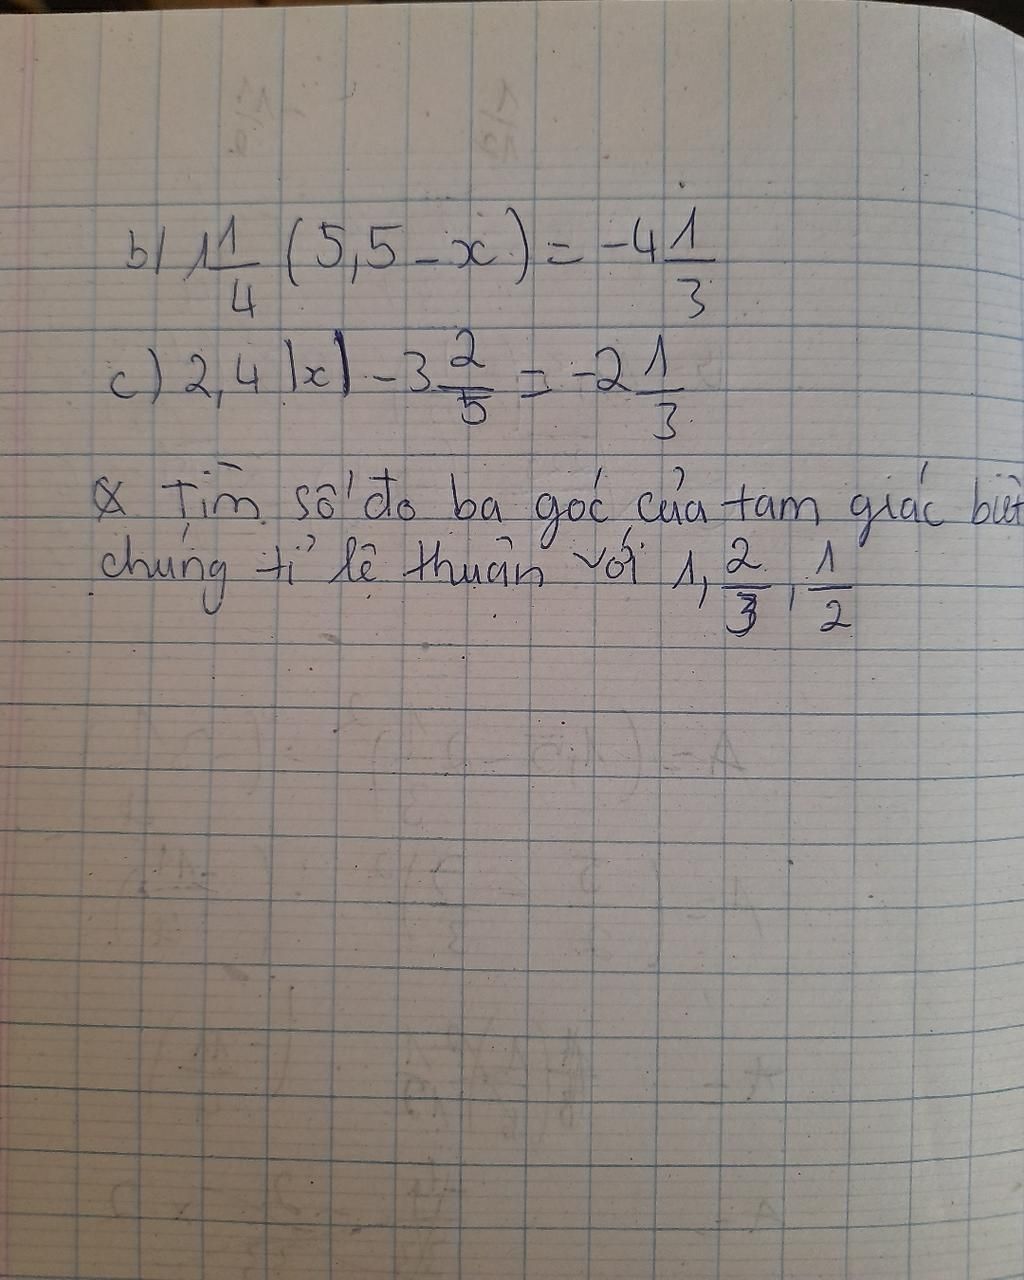 b) 1 1/4 (5,5 - x) = -4 1/3
c) 2,4 |x| - 3 2/5 = -2 1/3
Tìm số đo ba góc của tam giác biết
chúng tỉ lệ thuận với 1, 2/3, 1/2